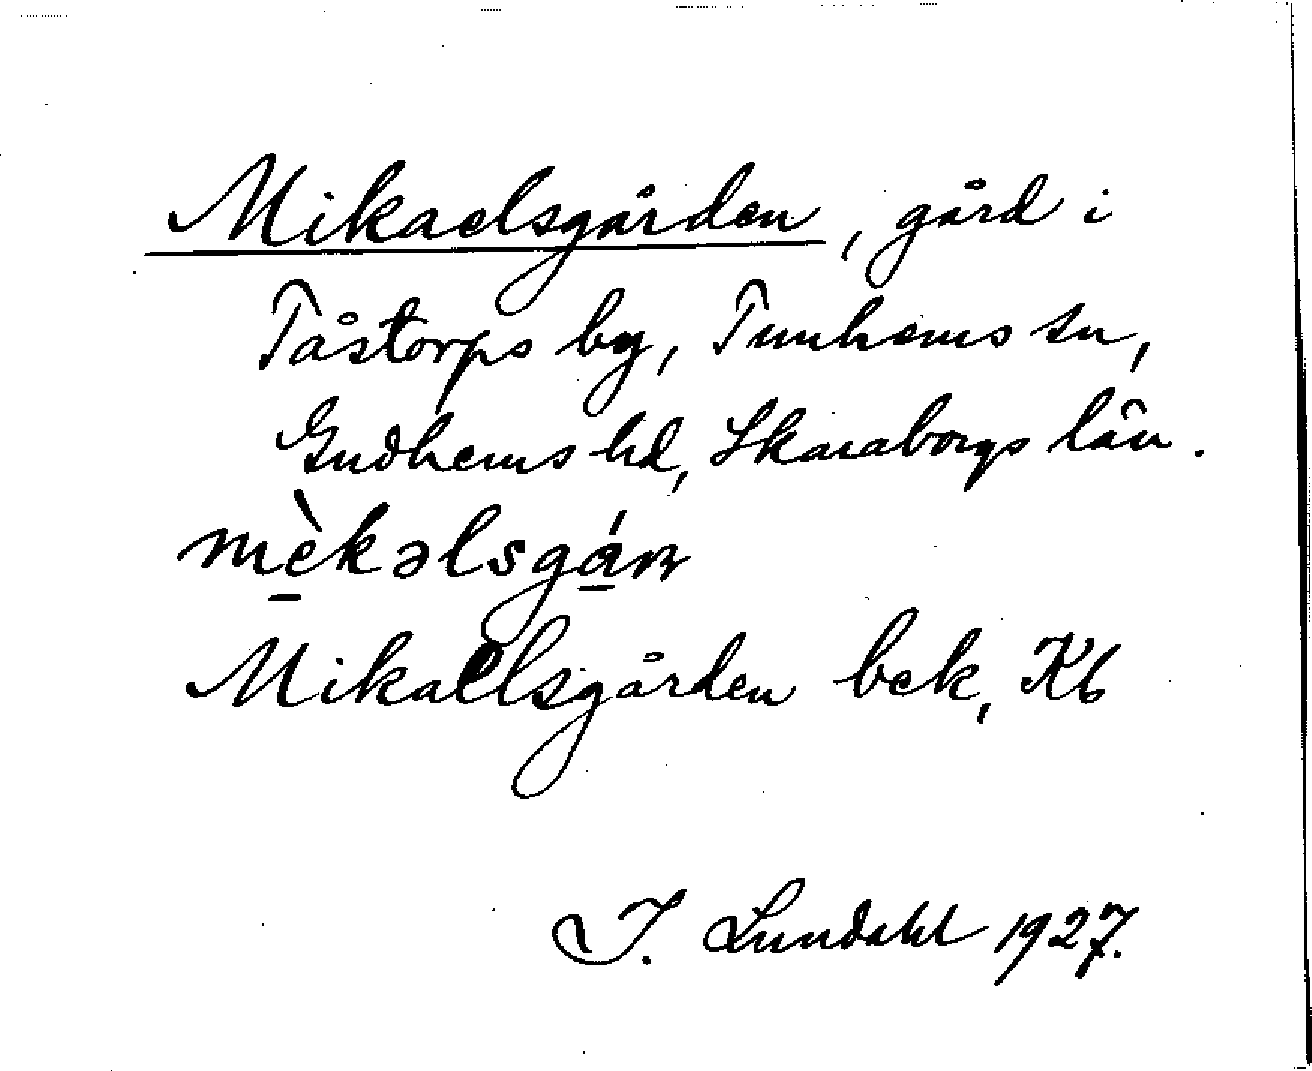 Mikaelsgården, gård i
Tåstorps by, Tunhems sn,
Gudhems hd, Skaraborgs län.
mèkəlsgáṛn
Mikaelsgården bek, Kb
I. Lundahl 1927.